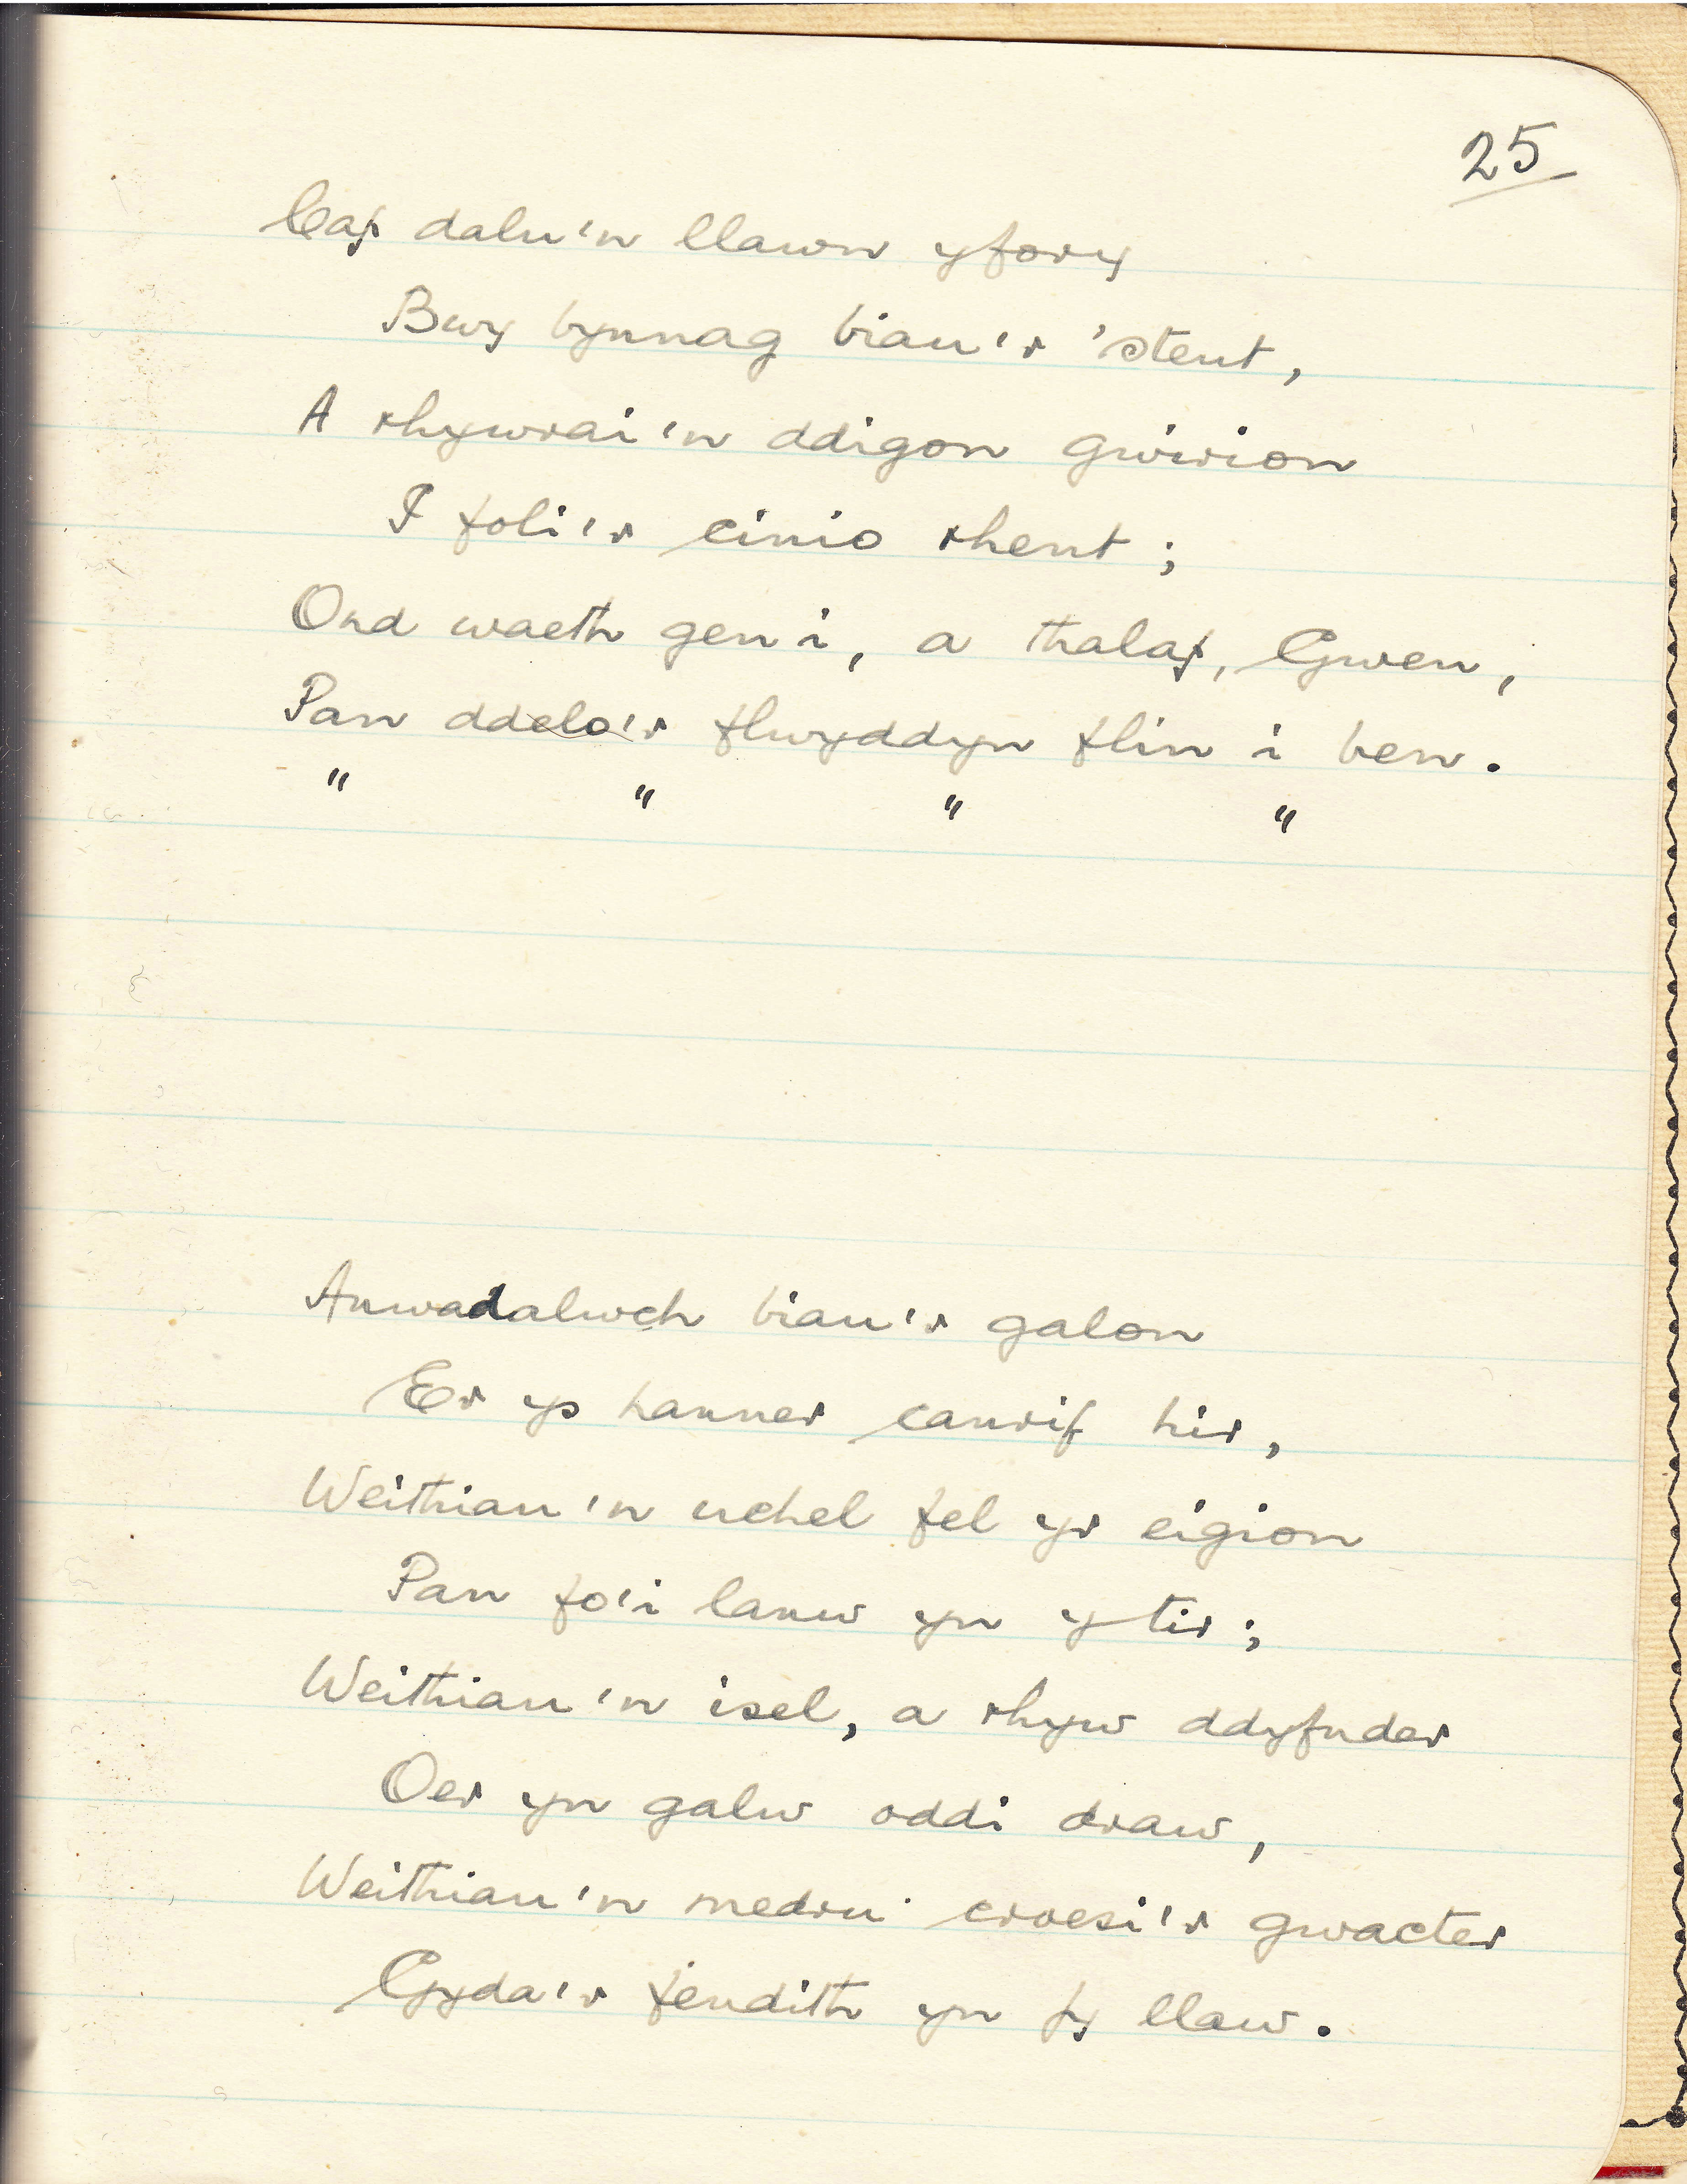 25
Caf dalu'n llawn yfory
Bwy bynnag biau'r 'stent,
A rhywrai'n ddigon gwirion
I foli'r cinio rhent;
Ond waeth gen i, a thalaf, Gwen,
Pan ddelo'r flwyddyn flin i ben.
" " " "
Anwadalwch biau'r galon
Er ys hanner canrif hir,
Weithiau'n uchel fel yr eigion
Pan fo'i lanw yn y tir;
Weithiau'n isel, a rhyw ddyfnder
Oer yn galw oddi draw,
Weithiau'n medru croesi'r gwacter
Gyda'r fendith yn fy llaw.